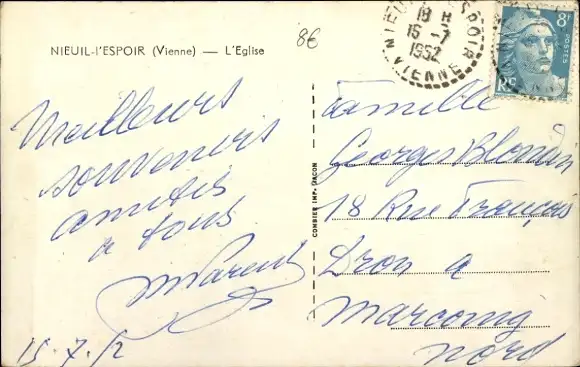 NIEUIL-l'ESPOIR (Vienne) — L'Eglise
8€
NIEUIL-L'ESPOIR
18 H
15-7
1952
VIENNE
8F
POSTES
RF
Meilleurs
souvenirs
amitiés
à tous
MParent
15.7.52
COMBIER IMP. MACON
Famille
Georges Blondin
18 Rue François
Dron à
Marcoing
Nord